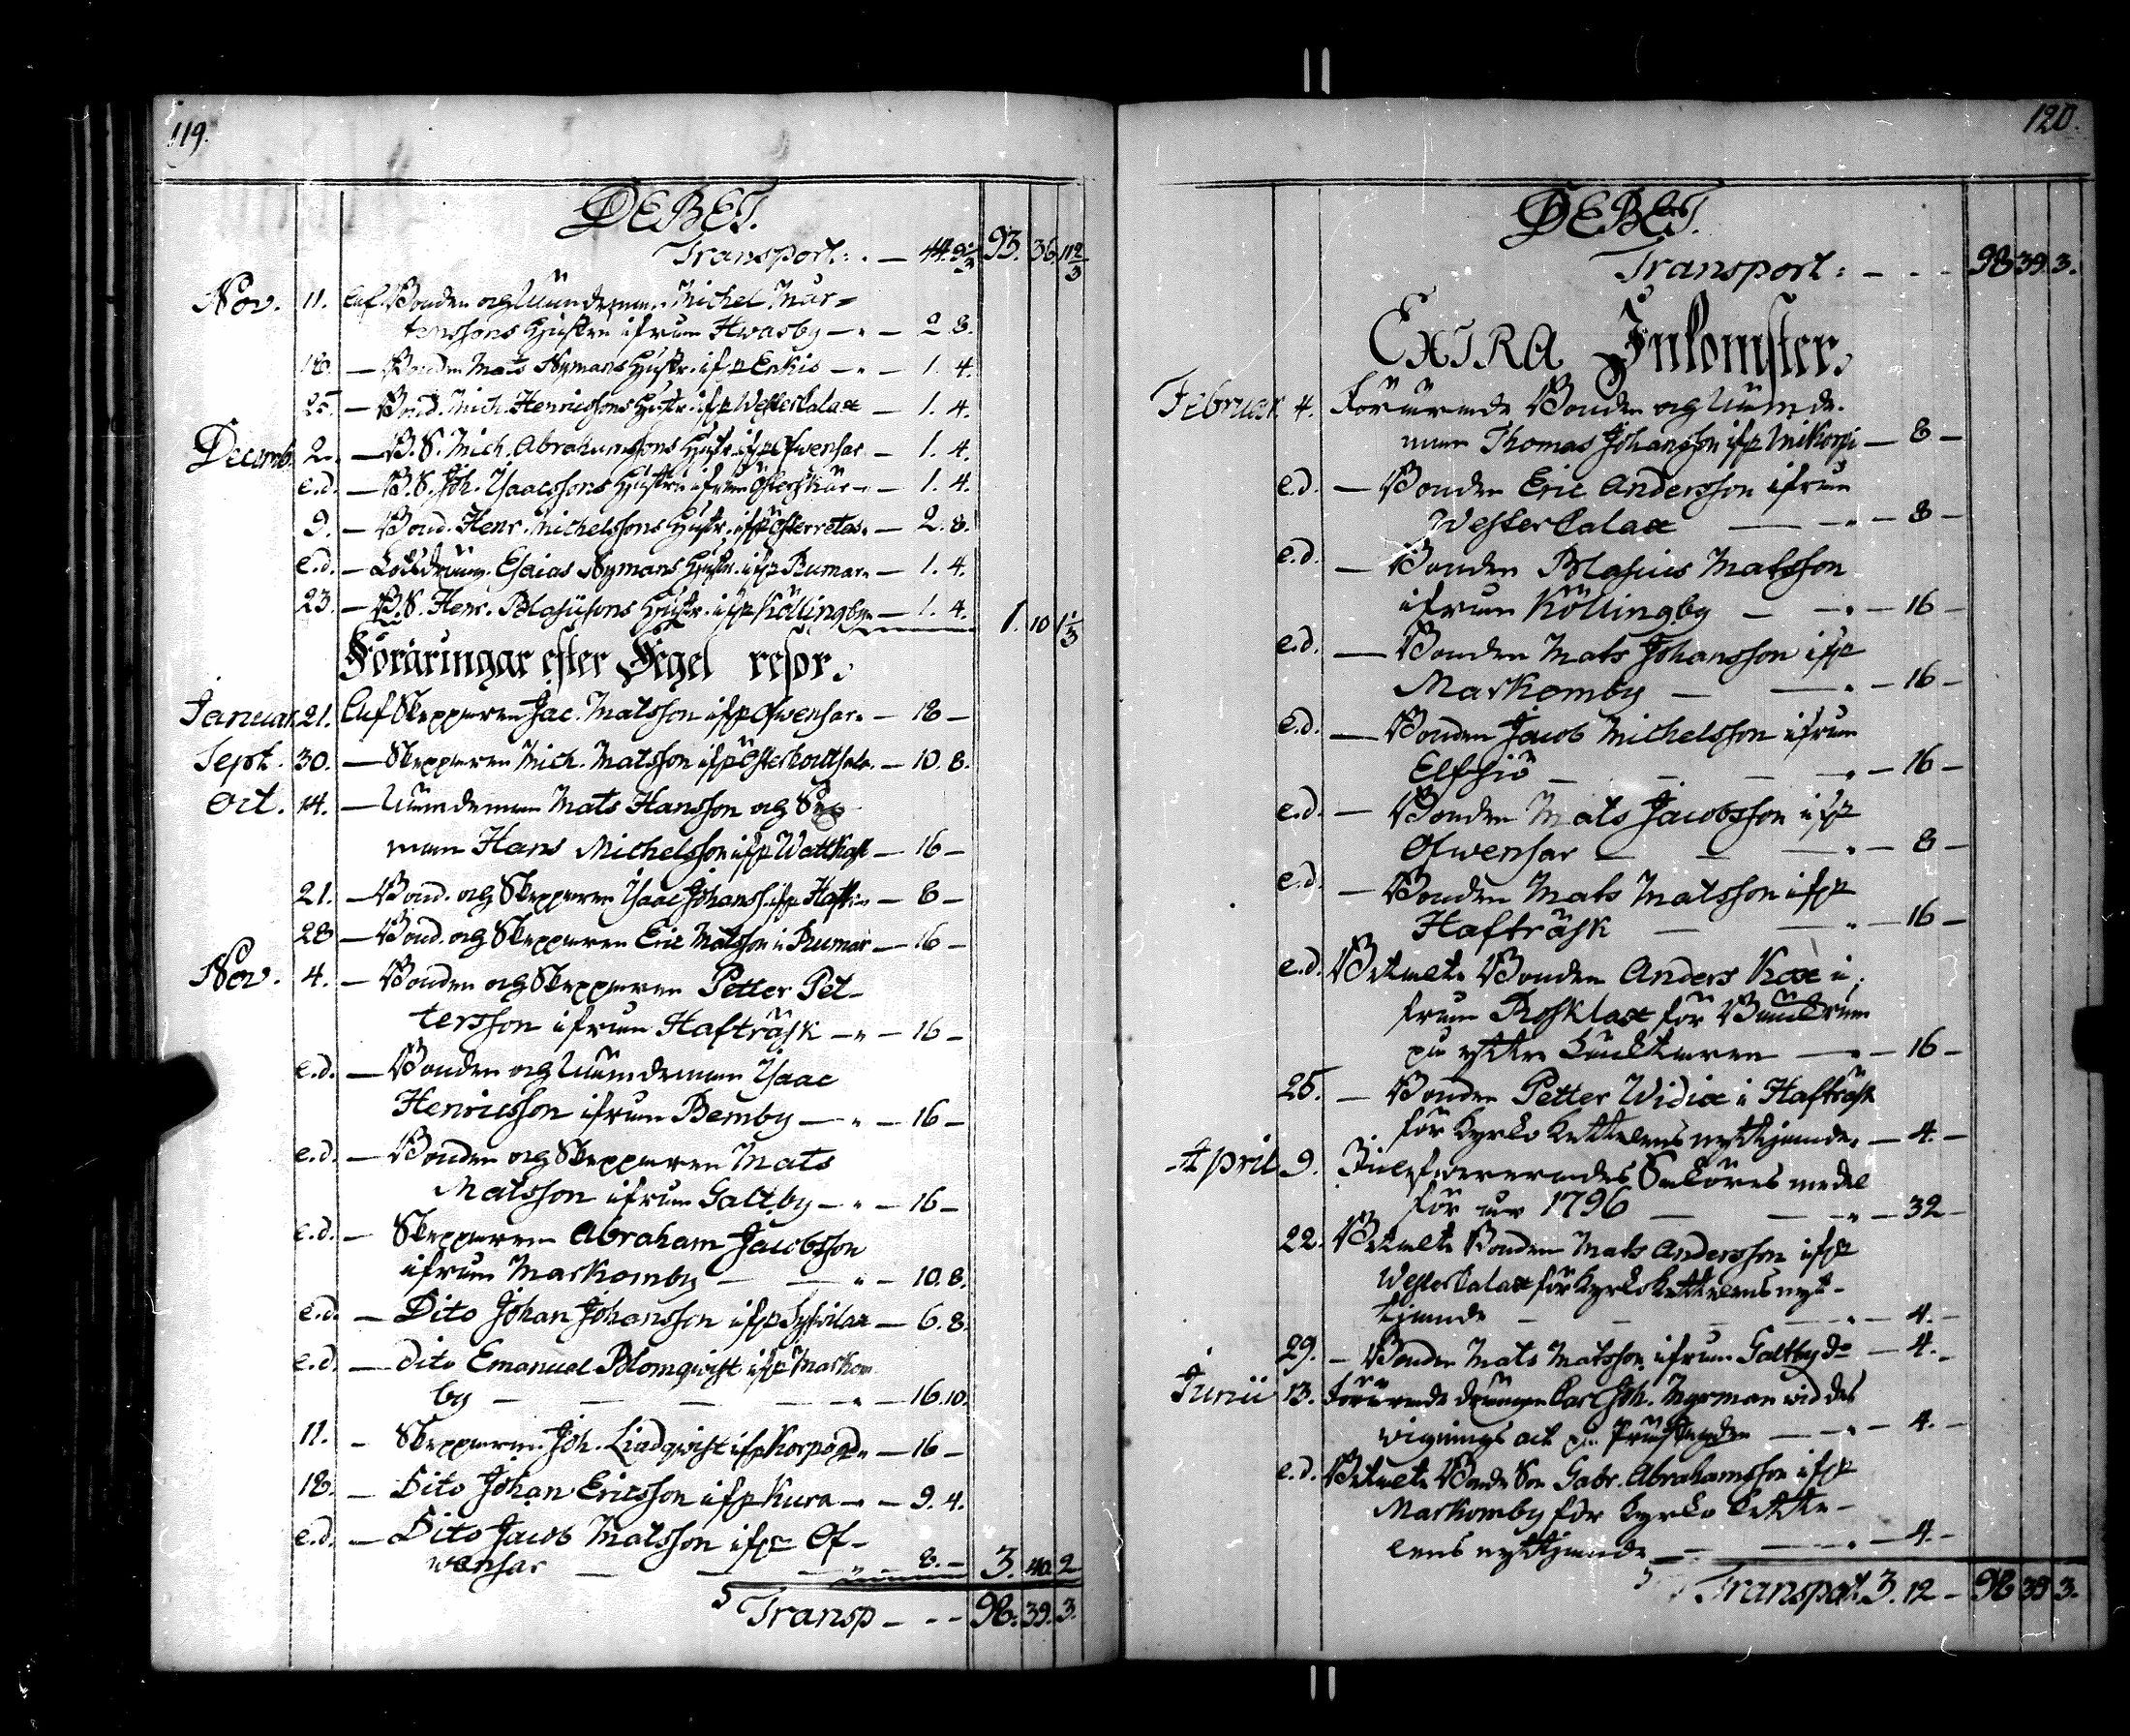 119.
DEBET.
Transport: . — 44. 9 1/3 93. 36. 11 2/3
Nov. 11. Af Bonden och Nämndeman Michel Mår-
tenssons Hustru ifrån Hwasby — „ — 2. 8.
18. — Bonden Mats Nymans Hustr. ifr. Enkis — „ — 1. 4.
25. — Bond. Mich. Henricssons Hustr. ifr. Westerkalax — 1. 4.
Decemb. 2. — B. S. Mich. Abrahamssons Hustr. ifr. Ofwensar — 1. 4.
e.d. — B. S. Joh. Ysaacssons Hustru ifrån Österskär — 1. 4.
9. — Bond. Henr. Michelssons Hustr. ifr. Österretas — 2. 8.
e.d. — Lotsdräng. Esaias Nymans Hustr. ifr. Rumar — 1. 4.
23. — B. S. Henr. Blasiisons Hustr. ifr. Köllingby — 1. 4. 1. 10 1 1/3
Föräringar efter Segel resor.
Januar. 21. Af Skepparen Jac. Matsson ifr. Ofwensar. — 18 —
Sept. 30. — Skepparen Mich. Matsson ifr. — 10. 8.
Oct. 14. — Nämndeman Mats Hansson och
man Hans Michelsson ifr. Wattkast — 16 —
21. — Bond. och Skepparen Ysaac Johanss. ifr. Haftr. — 8 —
28 — Bond. och Skepparen Eric Matsson i Rumar — 16 —
Nov. 4. — Bonden och Skepparen Petter Pet-
tersson ifrån Hafträsk — „ — 16 —
e.d. — Bonden och Nämndeman Ysaac
Henricsson ifrån Bemby — „ — 16 —
e.d. — Bonden och Skepparen Mats
Matsson ifrån Galtby — „ — 16 —
e.d. — Skepparen Abraham Jacobsson
ifrån Markomby — — „ — 10. 8.
e.d. — Dito Johan Johansson ifr. — 6. 8.
e.d. — dito Emanuel Blomqwist ifr. Markom
by — — — — „ — 16. 10.
11. — Skepparen Joh. Lindqwist ifr. Korpogd. — 16 —
18. — Dito Johan Ericsson ifr. Kura — „ — 9. 4.
e.d. — Dito Jacob Matsson ifr. Of-
wensar — — — „ — 8. — 3. 40. 2
Transp — - - 98. 39. 3.
120.
DEBET.
Transport: — - - 98 39. 3.
EXTRA Inkomster.
Februar. 4. Förärade Bonden och Nämnde-
man Thomas Johansson ifr. Mikorpi — 8 —
e.d. — Bonden Eric Andersson ifrån
Westerkalax — „ — 8 —
e.d. — Bonden Blasius Matsson
ifrån Köllingby — — „ — 16 —
e.d. — Bonden Mats Johansson ifr.
Markomby — — „ — 16 —
e.d. — Bonden Jacob Michelsson ifrån
Elfsiö — — — „ — 16 —
e.d. — Bonden Mats Jacobsson ifr.
Ofwensar — — — „ — 8 —
e.d. — Bonden Mats Matsson ifr.
Hafträsk — — „ — 16 —
e.d. Betalte Bonden Anders Kax i-
från Rosklax för Bänkrum
på yttre Läcktaren — „ — 16 —
25. — Bonden Petter Widix i Hafträsk
för Kyrko Kettelens nyttjande. — 4. —
April 9. Saköres medel
för år 1796 — — „ — 32 —
22. Betalte Bonden Mats Andersson ifr.
Westerkalax för Kyrko kettelens nyt-
tjande — — — „ — 4. —
29. — Bonden Mats Matsson ifrån Galtby do — 4. —
Junii 13. Förärade drängen Carl Joh. Nyman wid des
wignings act på Prästgården — „ — 4. —
e.d. Betalte Bonde Son Gabr. Abrahamsson ifr.
Markomby för Kyrko kette-
lens nyttjande — — „ — 4. —
Transport 3. 12 — 98 39 3.